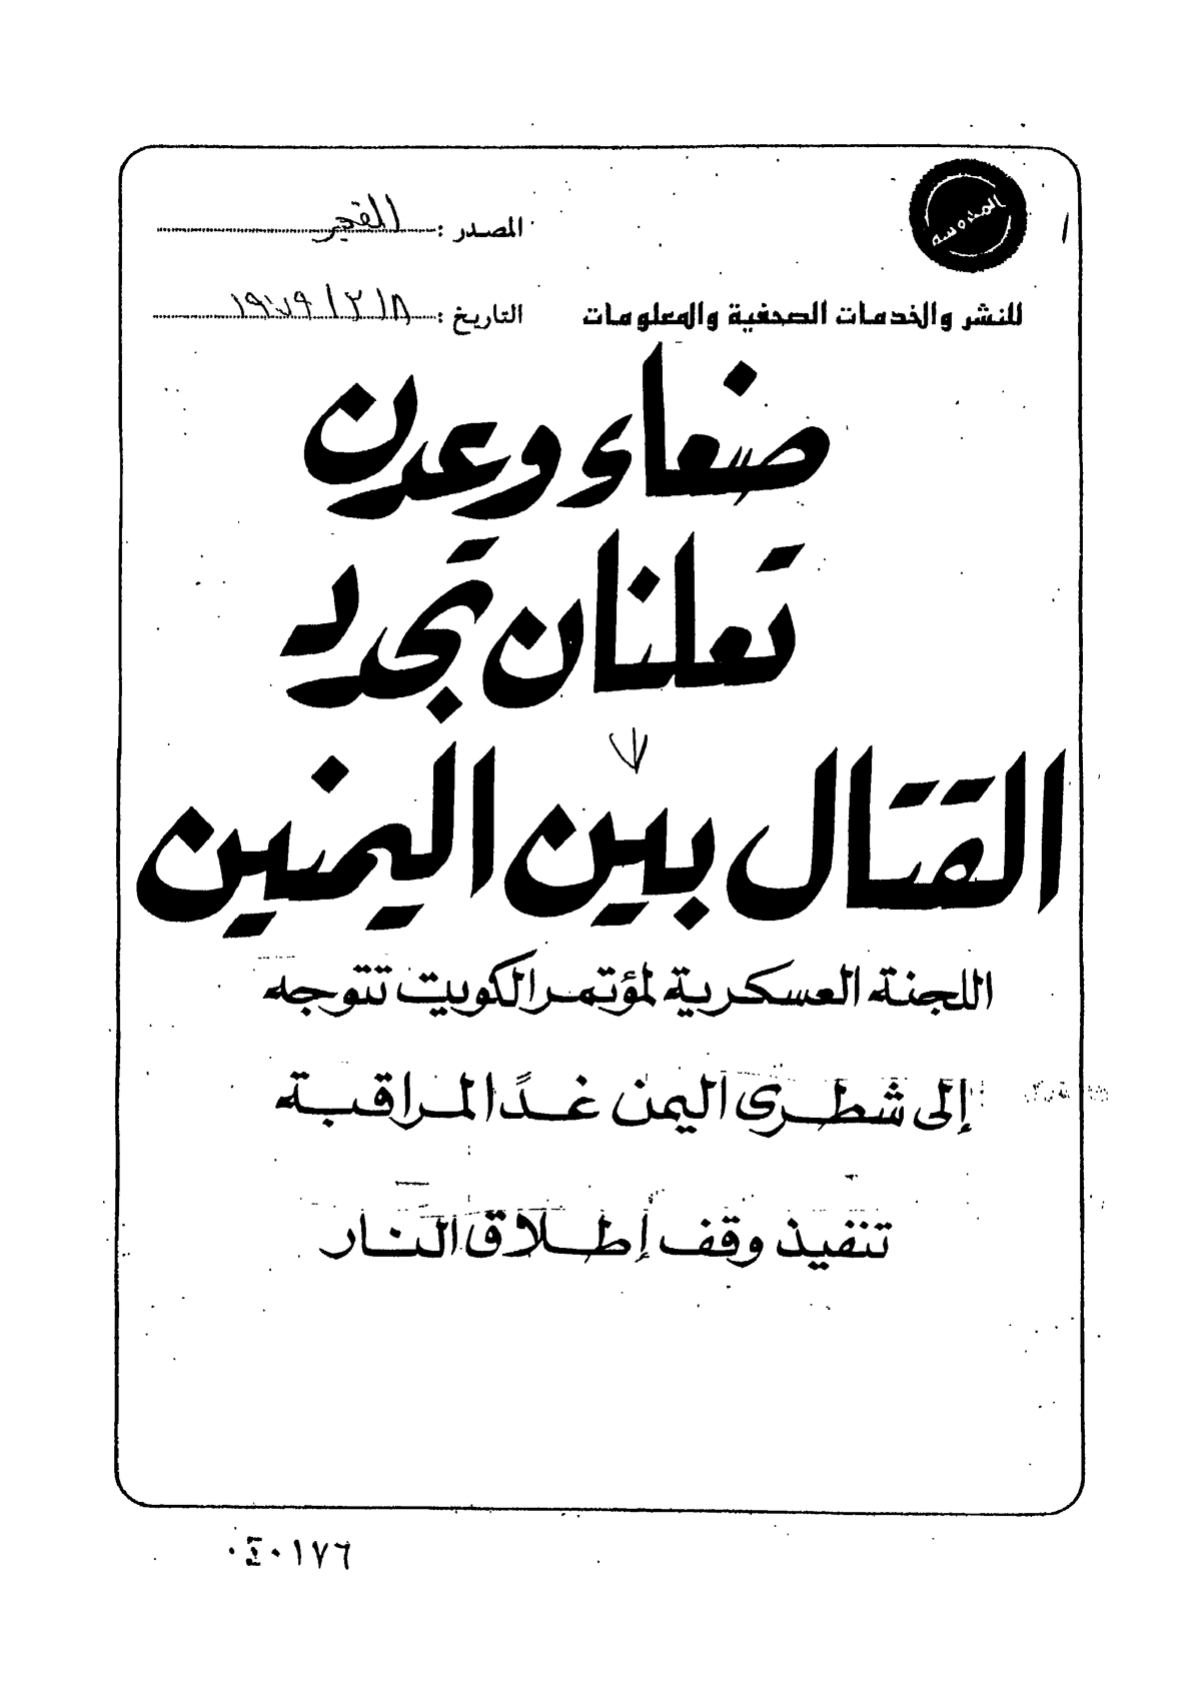 المحروسة
المصدر : الفجر
للنشر والخدمات الصحفية والمعلومات
التاريخ : ٨ / ٣ / ١٩٧٩
صنعاء وعدن
تعلنان تجدد
القتال بين اليمنين
اللجنة العسكرية لمؤتمر الكويت تتوجه
إلى شطرى اليمن غداً لمراقبة
تنفيذ وقف إطلاق النار
٠٤٠١٧٦